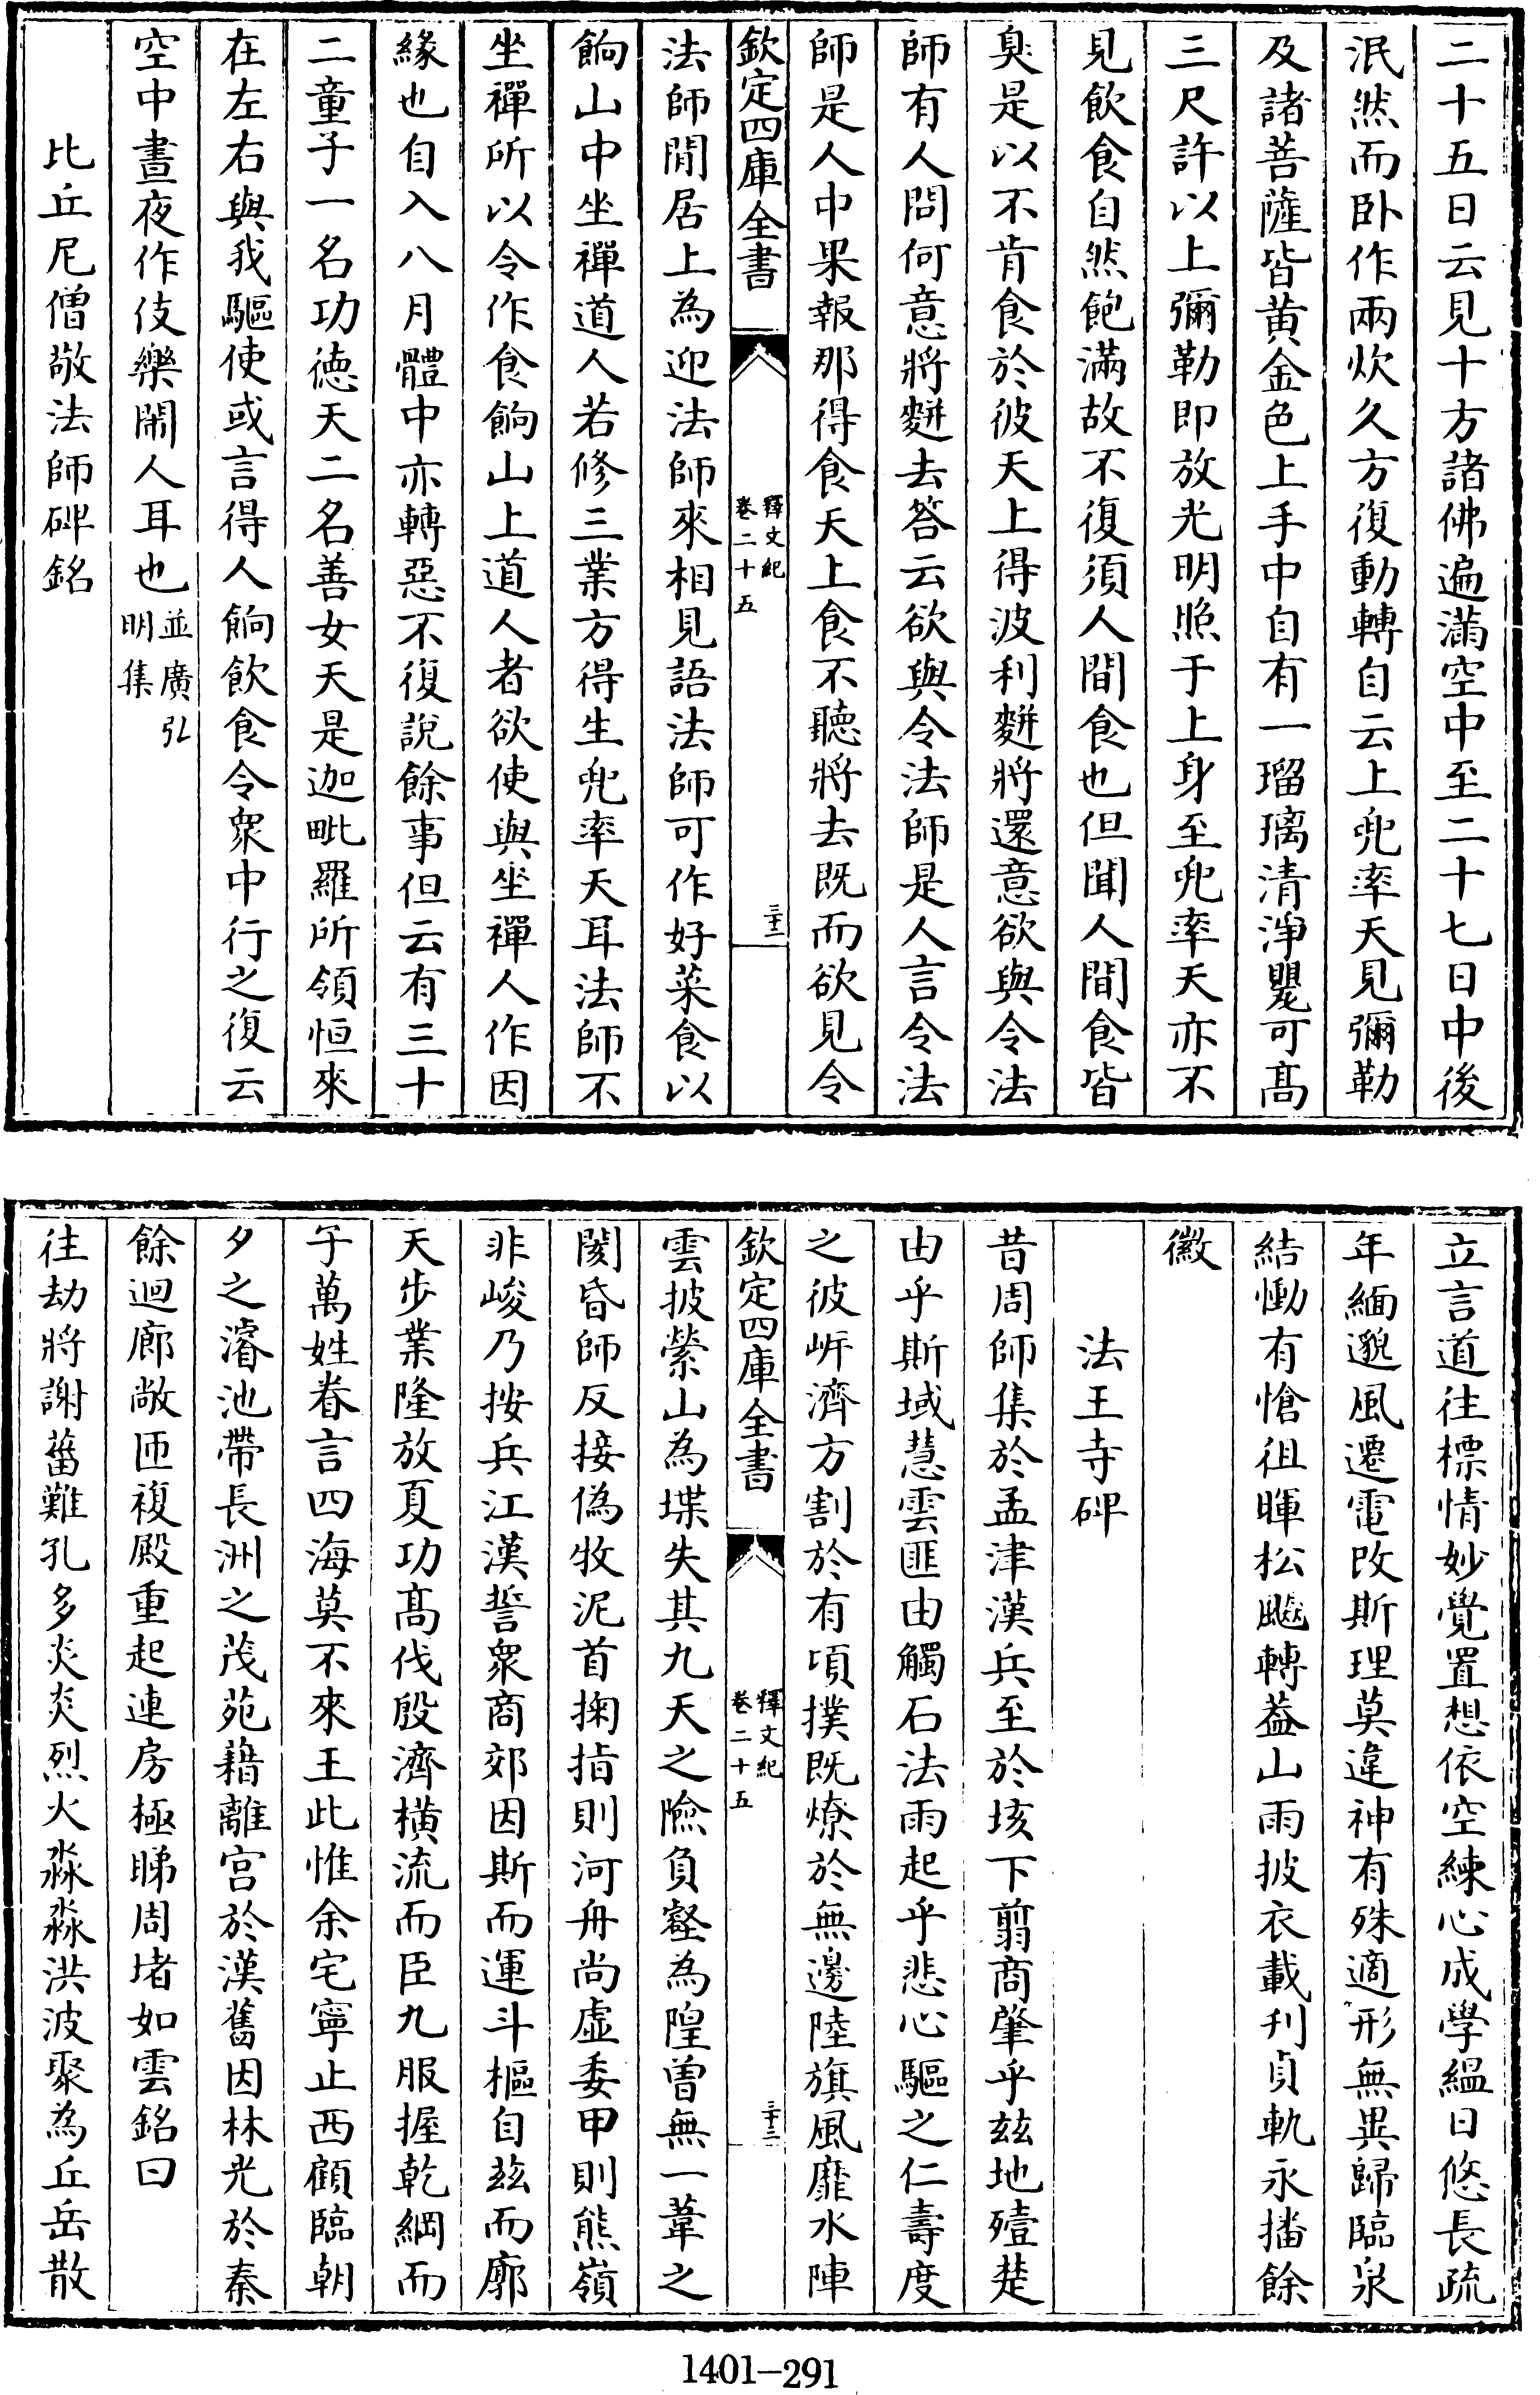 二十五日云見十方諸佛遍滿空中至二十七日中後
泯然而卧作兩炊久方復動轉自云上兜率天見彌勒
及諸菩薩皆黄金色上手中自有一瑠璃清淨甖可髙
三尺許以上彌勒即放光明照于上身至兜率天亦不
見飲食自然飽滿故不復須人間食也但聞人間食皆
臭是以不肯食於彼天上得波利䴵將還意欲與令法
師有人問何意將䴵去答云欲與令法師是人言令法
師是人中果報那得食天上食不聽將去既而欲見令
欽定四庫全書
釋文紀
卷二十五
三十二
法師閒居上為迎法師來相見語法師可作好菜食以
餉山中坐禪道人若修三業方得生兜率天耳法師不
坐禪所以令作食餉山上道人者欲使與坐禪人作因
緣也自入八月體中亦轉惡不復說餘事但云有三十
二童子一名功徳天二名善女天是迦毗羅所領恒來
在左右與我驅使或言得人餉飲食令衆中行之復云
空中晝夜作伎樂閙人耳也並廣弘
明集
比丘尼僧敬法師碑銘
立言道往標情妙覺置想依空練心成學緼日悠長疏
年緬邈風遷電改斯理莫違神有殊適形無異歸臨泉
結慟有愴徂暉松飈轉葢山雨披衣載刋貞軌永播餘
徽
法王寺碑
昔周師集於孟津漢兵至於垓下翦商肇乎兹地殪楚
由乎斯域慧雲匪由觸石法雨起乎悲心驅之仁壽度
之彼岍濟方割於有頃撲既燎於無邊陸旗風靡水陣
欽定四庫全書
釋文紀
卷二十五
三十三
雲披縈山為堞失其九天之險負壑為隍曽無一葦之
閡昏師反接偽牧泥首掬指則河舟尚虚委甲則熊嶺
非峻乃按兵江漢誓衆商郊因斯而運斗樞自兹而廓
天步業隆放夏功髙伐殷濟橫流而臣九服握乾綱而
子萬姓眷言四海莫不來王此惟余宅寧止西顧臨朝
夕之濬池帶長洲之茂苑藉離宫於漢舊因林光於秦
餘迴廊敞匝複殿重起連房極睇周堵如雲銘曰
往劫將謝菑難孔多炎炎烈火淼淼洪波聚為丘岳散
1401-291